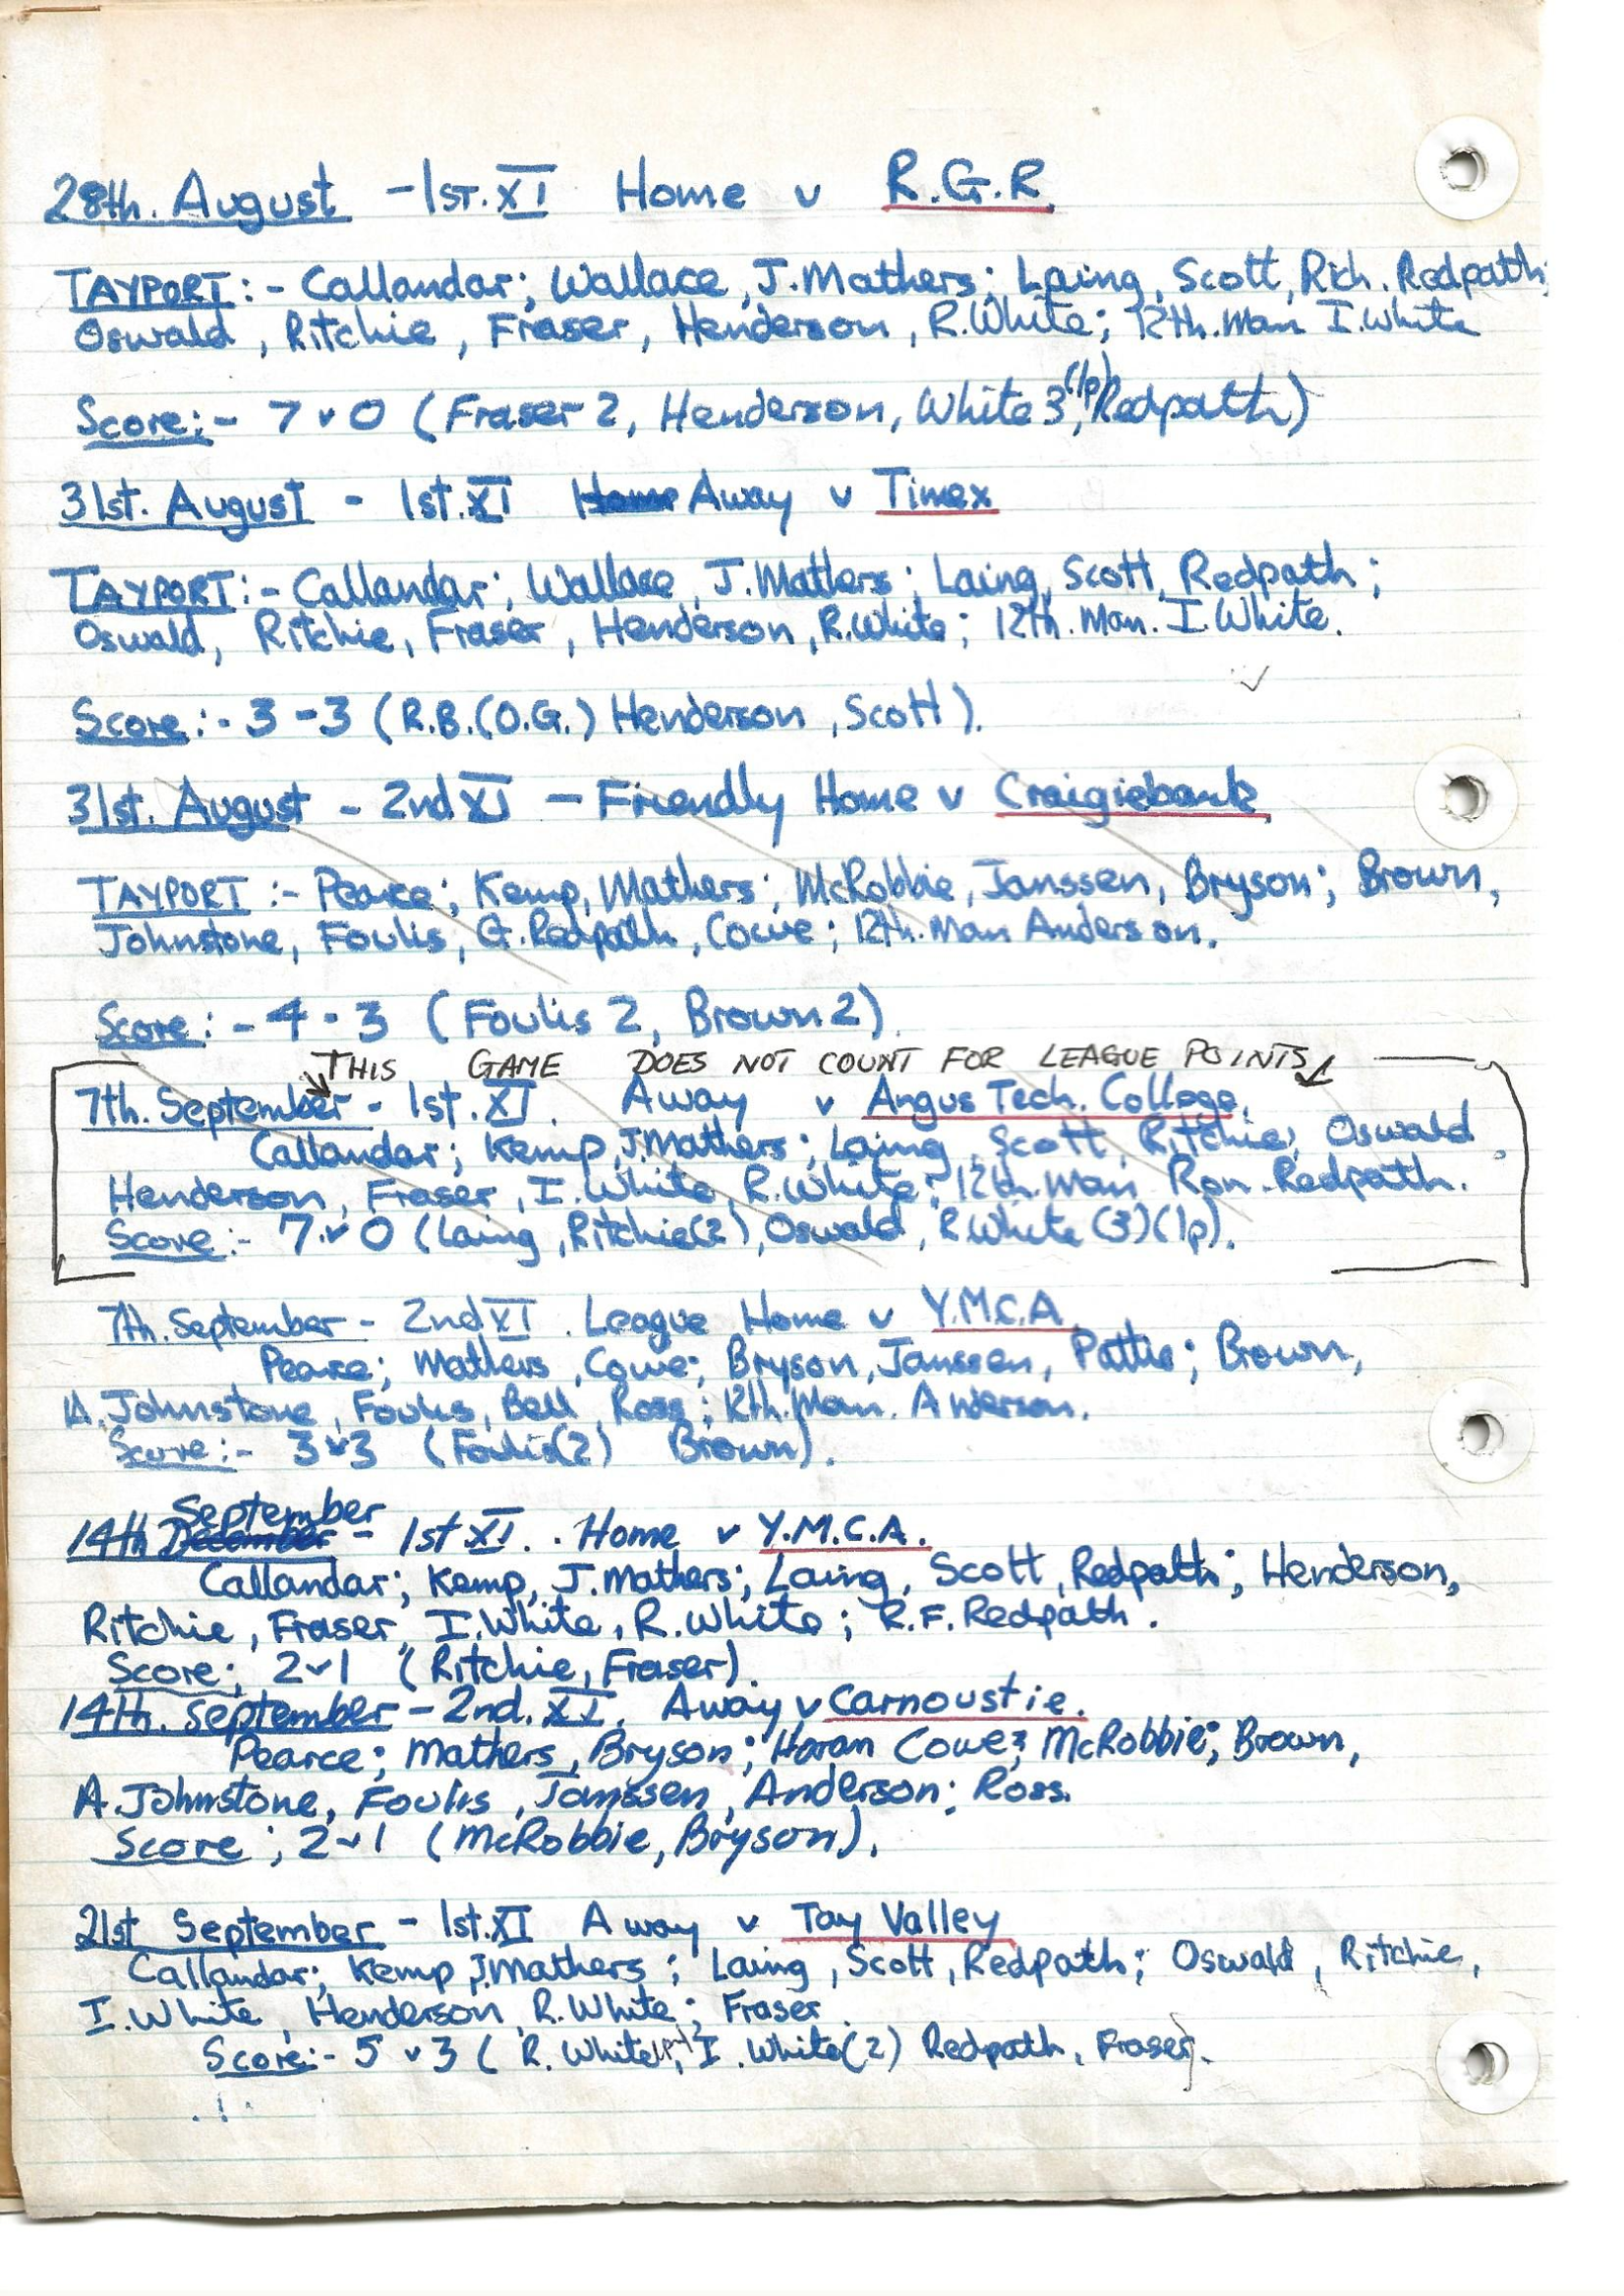 28th. August - 1st. XI Home v R.G.R.
TAYPORT:- Callandar; Wallace, J. Mathers; Laing, Scott, Rich. Redpath;
Oswald, Ritchie, Fraser, Henderson, R. White; 12th. Man I. White
Score:- 7 v 0 (Fraser 2, Henderson, White 3 (1p), Redpath)
31st. August - 1st. XI Home Away v Timex
TAYPORT:- Callandar; Wallace, J. Mathers; Laing, Scott, Redpath;
Oswald, Ritchie, Fraser, Henderson, R. White; 12th. Man. I. White.
Score:- 3 - 3 (R.B.(O.G.) Henderson, Scott).
31st. August - 2nd XI - Friendly Home v Craigiebank
TAYPORT:- Pearce; Kemp, Mathers; McRobbie, Janssen, Bryson; Brown,
Johnstone, Foulis, G. Redpath, Cowe; 12th. Man Anderson.
Score:- 4 - 3 (Foulis 2, Brown 2).
THIS GAME DOES NOT COUNT FOR LEAGUE POINTS
7th. September - 1st. XI. Away v Angus Tech. College.
Callandar; Kemp, J. Mathers; Laing, Scott, Ritchie; Oswald,
Henderson, Fraser, I. White, R. White; 12th. Man Ron. Redpath.
Score:- 7 v 0 (Laing, Ritchie(2), Oswald, R. White (3)(1p).
7th. September - 2nd XI. League Home v Y.M.C.A.
Pearce; Mathers, Cowe; Bryson, Janssen, Pattie; Brown,
A. Johnstone, Foulis, Bell, Ross; 12th. Man. Anderson.
Score:- 3 v 3 (Foulis(2) Brown).
September
14th December - 1st XI. . Home v Y.M.C.A.
Callandar; Kemp, J. Mathers; Laing, Scott, Redpath; Henderson,
Ritchie, Fraser, I. White, R. White; R.F. Redpath.
Score; 2 v 1 (Ritchie, Fraser).
14th. September - 2nd. XI. Away v Carnoustie.
Pearce; Mathers, Bryson; Horan Cowe; McRobbie; Brown,
A. Johnstone, Foulis, Janssen, Anderson; Ross.
Score; 2 v 1 (McRobbie, Bryson).
21st September - 1st. XI Away v Tay Valley
Callandar; Kemp, J. Mathers; Laing, Scott, Redpath; Oswald, Ritchie,
I. White, Henderson, R. White; Fraser
Score:- 5 v 3 (R. White, I. White(2) Redpath, Fraser).